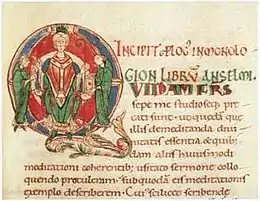 INCIPIT PLOG' IN MONOLO
GION LIBRU ANSELMI.
VIDAMFRS
sepe me studioseq; pre
cati sunt. ut quedā que
illis de meditanda divi
nitatis essentia & quib;
dam aliis huiusmodi
meditationi coherentib; usitato sermone collo
quendo protuleram. sub quodā eis meditationis
exemplo describerem. Cuius scilicet scribende